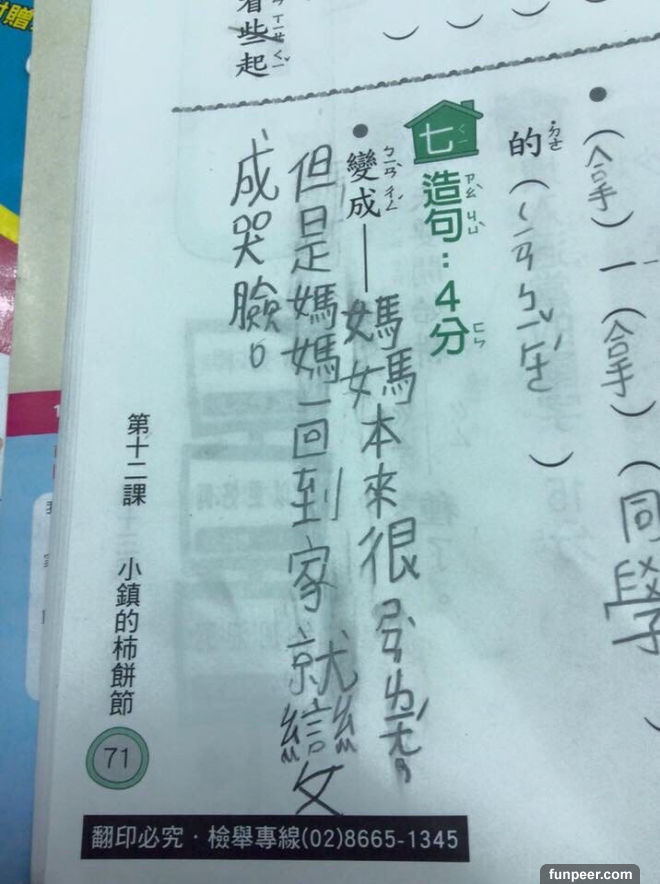 (拿)一(拿)(同學
的(ㄑㄧㄢㄅㄧˇㄏㄜˊ)
七 造句：4分
變成——媽媽本來很
但是媽媽一回到家就變
成哭臉。
些起
第十二課 小鎮的柿餅節
71
翻印必究·檢舉專線(02)8665-1345
funpeer.com